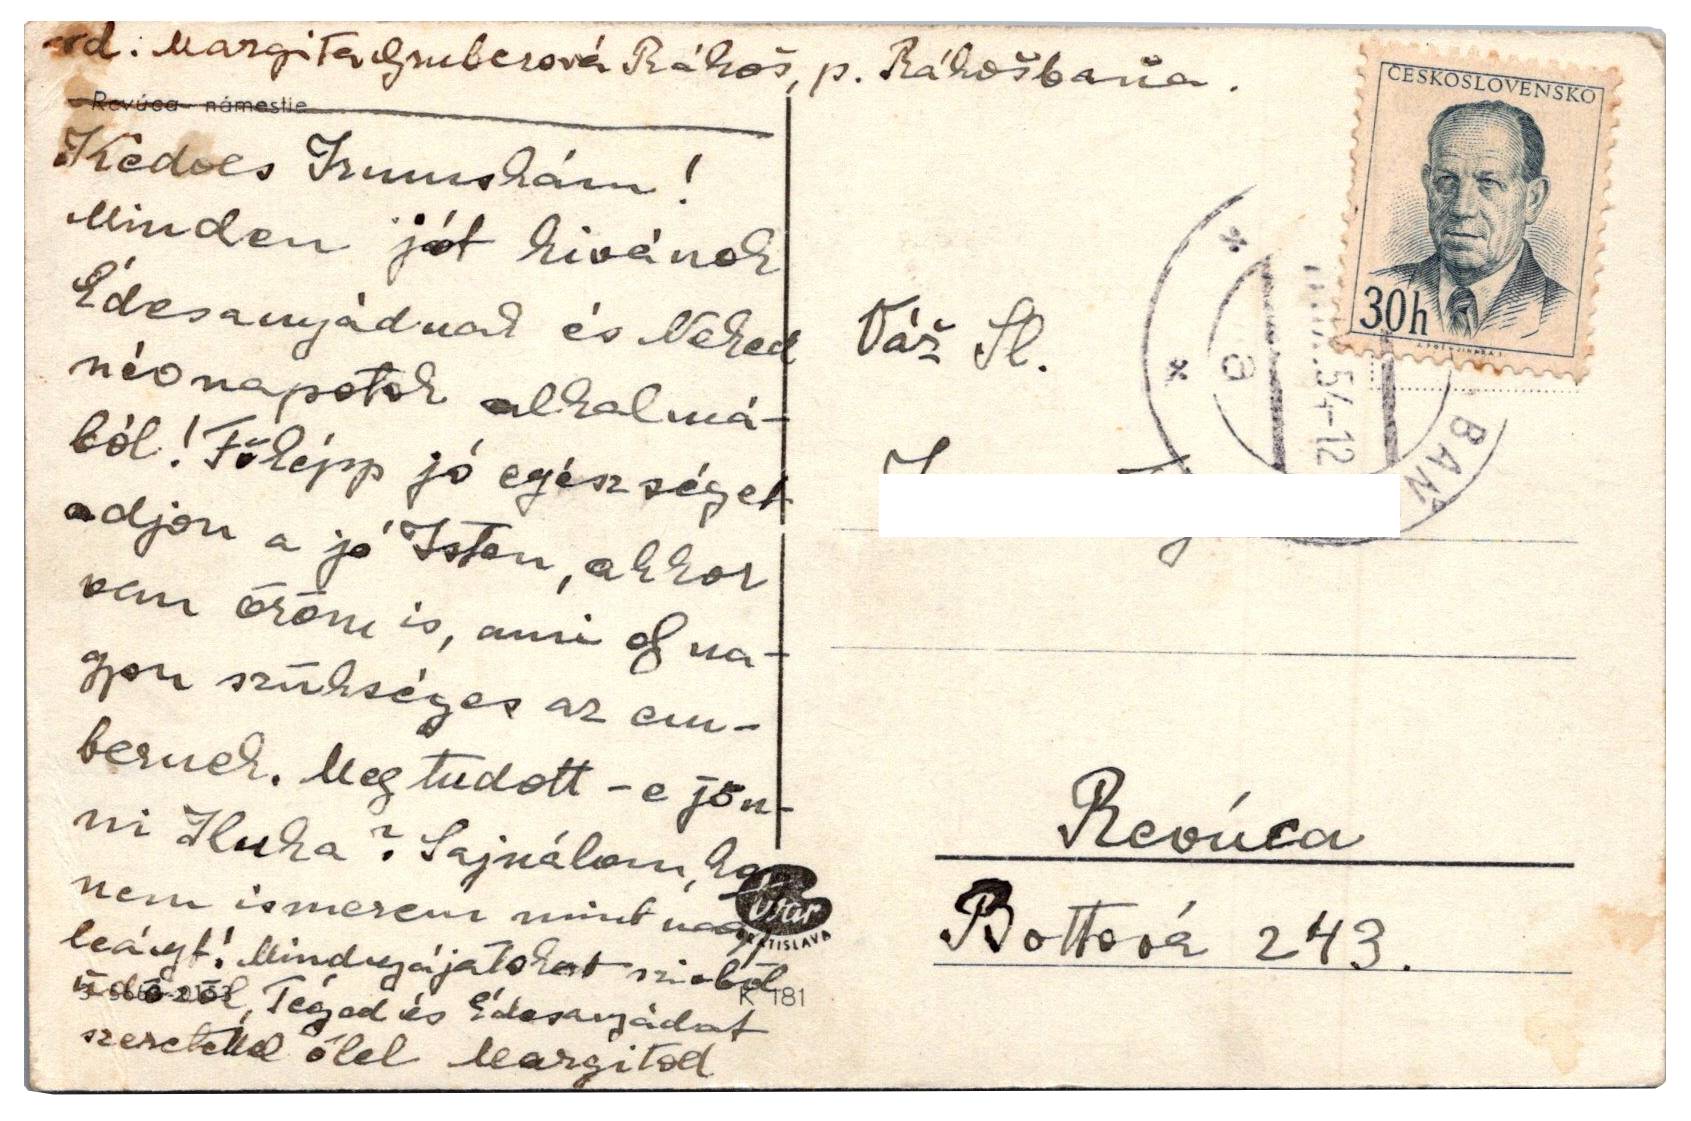 rd. Margita Gruberová Rákoš, p. Rákošbaňa.
Revúca - námestie
Kedves Irmuskám!
Minden jót kivánok
Édesanyádnak és Neked
névnapotok alkalmá-
ból! Főképp jó egészséget
adjon a jó Isten, akkor
van öröm is, ami oly na-
gyon szükséges az em-
bernek. Meg tudott-e jön-
ni Iluka? Sajnálom, hogy
nem ismerem mint nagy
leányt! Mindnyájatokat szívből
üdvözöl, Téged és Édesanyádat
szeretettel ölel Margitod
Tvar
BRATISLAVA
K 181
ČESKOSLOVENSKO
30h
54-12
BAŇ
a
Váž Sl.
Revúca
Bottová 243.